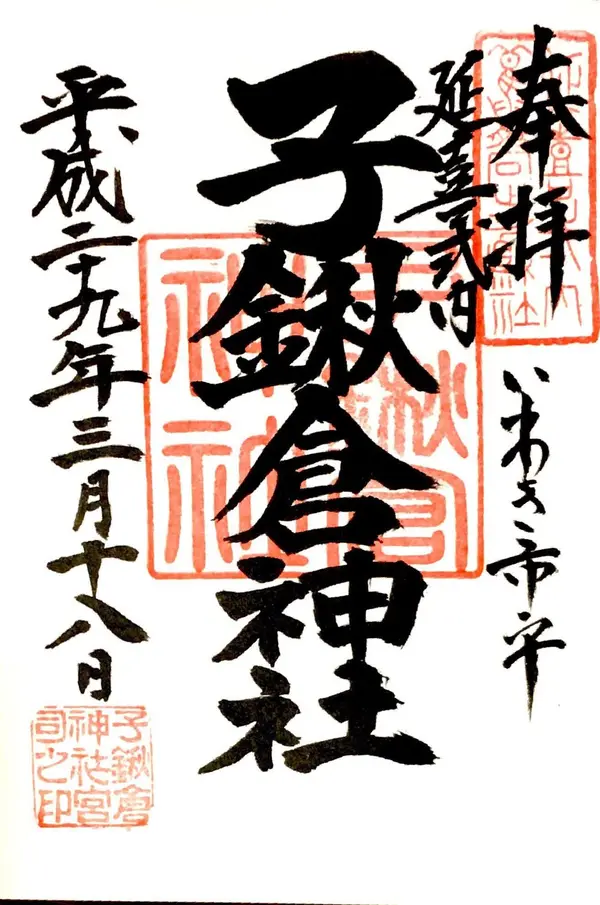 奉拝
延喜式内
いわき市平
子鍬倉神社
平成二十九年三月十八日
子鍬倉
神社宮
司之印